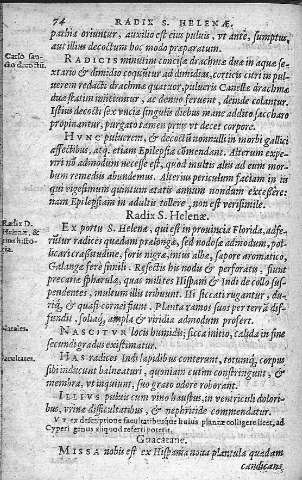 74 RADIX S. HELENÆ.
pathia oriuntur, auxilio est eius puluis, vt antè, sumptus,
aut illius decoctum hoc modo præparatum.
Carlo san-
cto decoctū.
RADICIS minutim concisæ drachmæ duæ in aquæ se-
xtario & dimidio coquūtur ad dimidias, corticis citri in pul-
uerem redacti drachmæ quatuor, pulueris Canellæ drachmæ
duæ statim iniiciuntur, ac denuo feruent, deinde colantur.
Istius decocti sex vnciæ singulis diebus manè addito saccharo
propinantur, purgato tamen prius vt decet corpore.
HVNC puluerem, & decoctū nonnulli in morbi gallici
affectibus, atq. etiam Epilepsiæ cōmendant. Alterum expe-
riri nō admodum necesse est, quod multi alij ad eum mor-
bum remedia abundemus. Alterius periculum faciam in iis
qui vigesimum quintum ætatis annum nondum excessere:
nam Epilepsiam in adultis tollere, non est verisimile.
Radix S. Helenæ.
Radix D.
Helenæ, &
eius histo-
ria.
EX portu S. Helenæ, qui est in prouincia Florida, adfe-
rūtur radices quædam prælongæ, sed nodosæ admodum, pol-
licari crassitudine, foris nigræ, intus albæ, sapore aromatico,
Galangæ ferè simili. Resectis his nodis & perforatis, fiunt
precariæ sphærulæ, quas milites Hispani & Indi de collo sus-
pendentes, multum illis tribuunt. Hi siccati rugantur, du-
riq, & quasi cornei fiunt. Planta ramos suos per terrā dif-
fundit, foliaq, ampla & viridia admodum profert.
Natales.
NASCITVR locis humidis; sicca initio, calida in fine
secundi gradus existimatur.
Facultates.
HAS radices Indi lapidibus conterunt, totumq, corpus
sibi inducunt balneaturi, quoniam cutim constringunt, &
membra, vt inquiunt, suo grato odore roborant.
ILLIVS puluis cum vino haustus, in ventriculi dolori-
bus, vrinæ difficultatibus, & nephritide commendatur.
Vt ex descriptione facultatibusque huius plantæ colligere licet, ad
Cyperi genus aliquod referri poterit.
Guacatane.
MISSA nobis est ex Hispania noua plantula quædam
candicans,